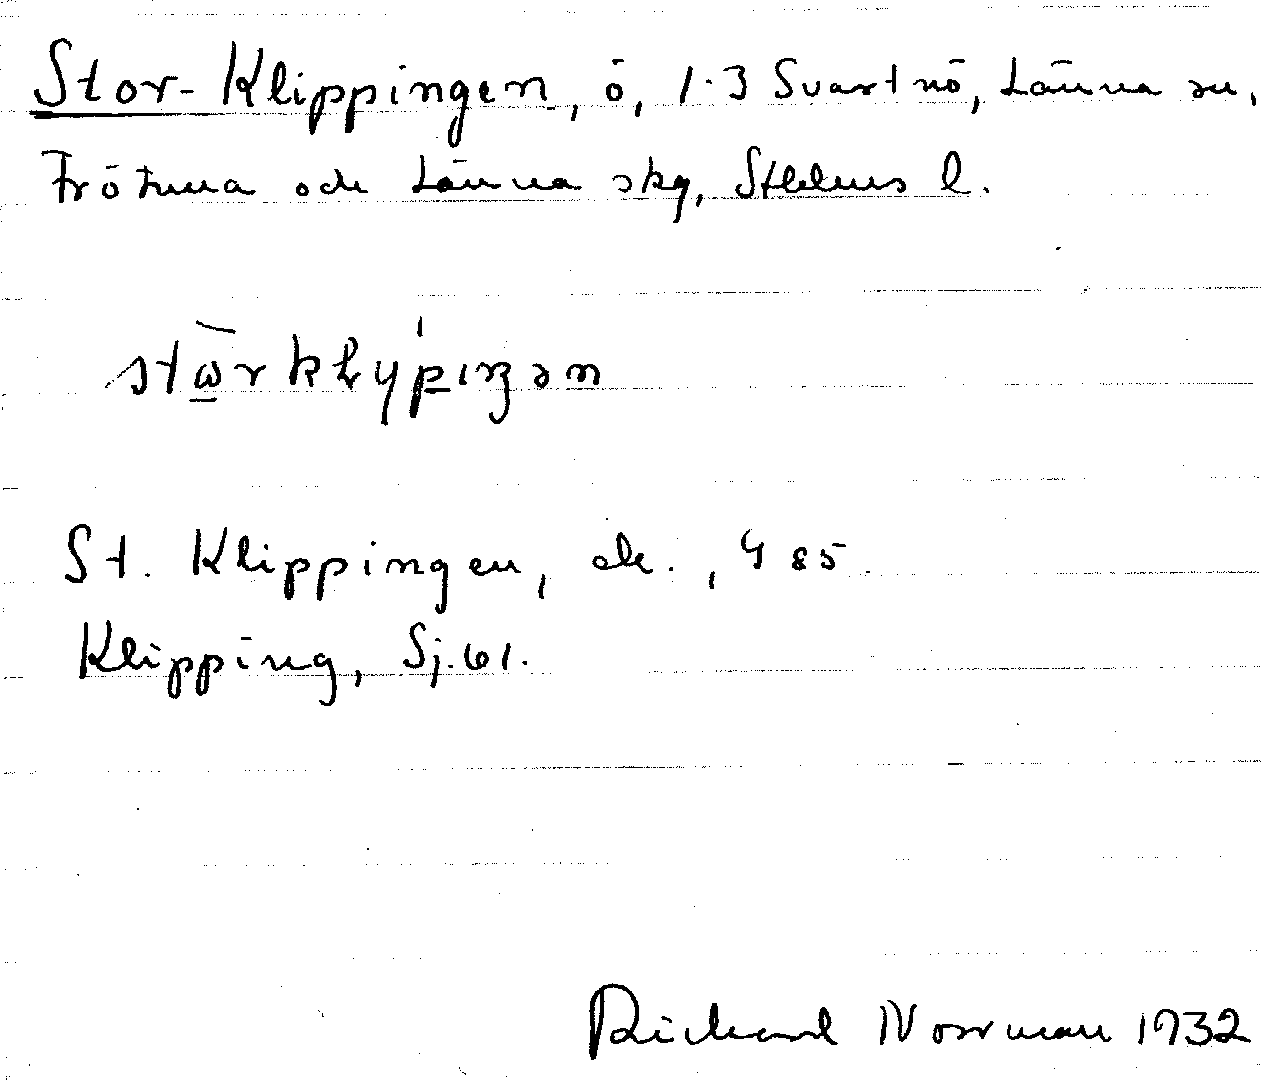 Stor-Klippingen, ö, 1.3 Svartnö, Länna sn,
Frötuna och Länna skg, Sthlms l.
stωrklypiŋən
St. Klippingen, ek., 485.
Klipping, Sj. 61.
Rickard Norrman 1932